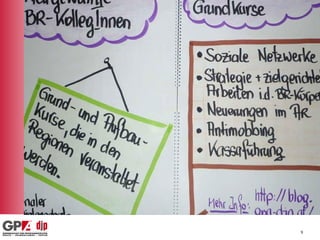 BR-KollegInnen
Grund- und Aufbau-
Kurse, die in den
Regionen veranstaltet
werden.
Grundkurse
• Soziale Netzwerke
• Strategie + zielgerichte
Arbeiten i.d. BR-Körpe
• Neuerungen im AR
• Antimobbing
• Kassaführung
Mehr Info: http://blog.
GPA djp